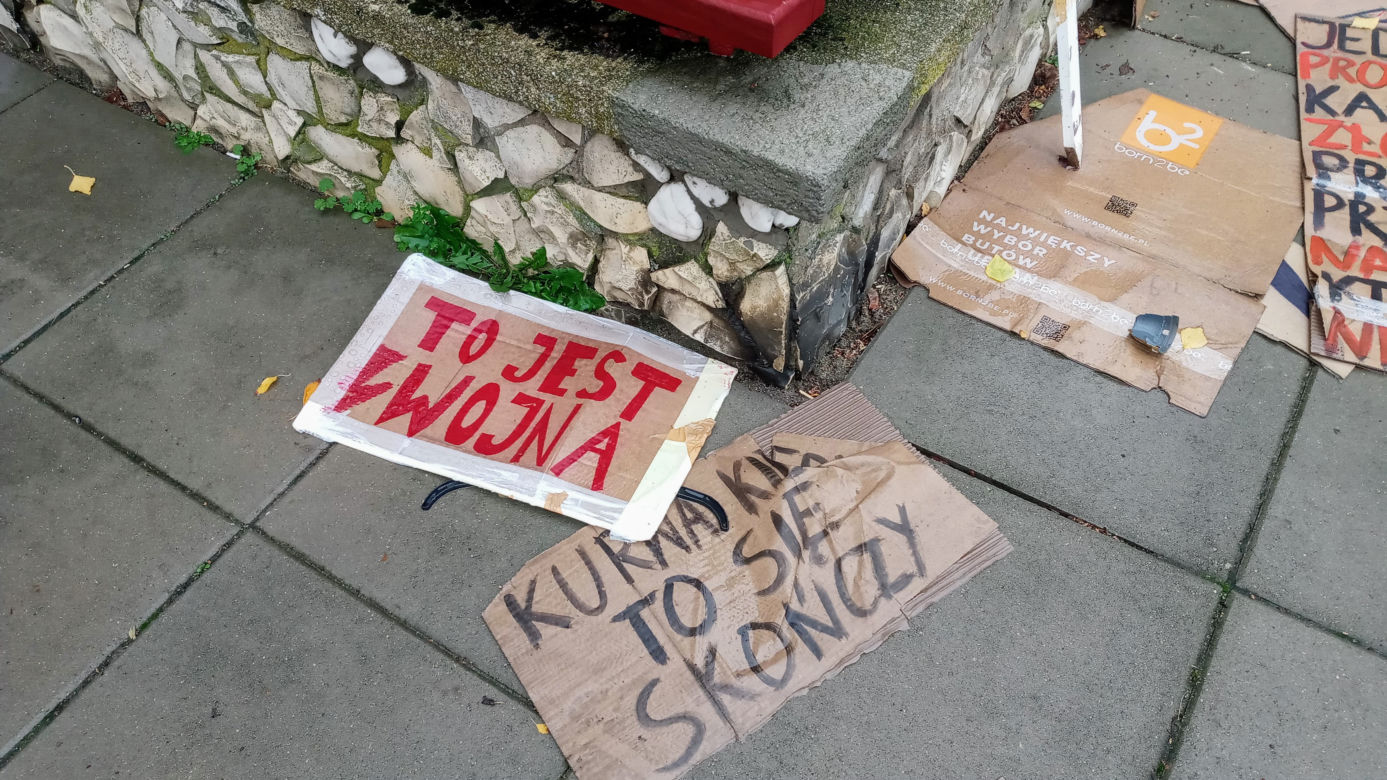 TO JEST
WOJNA
KURWA KIE
TO SIĘ
SKOŃCZY
b2
born2be
WWW.BORN2BE.PL
NAJWIĘKSZY
WYBÓR
BUTÓW
born2be
WWW.BORN2BE.PL
JED
PRO
KA
ZŁO
PR
PRZ
NA
KT
NI